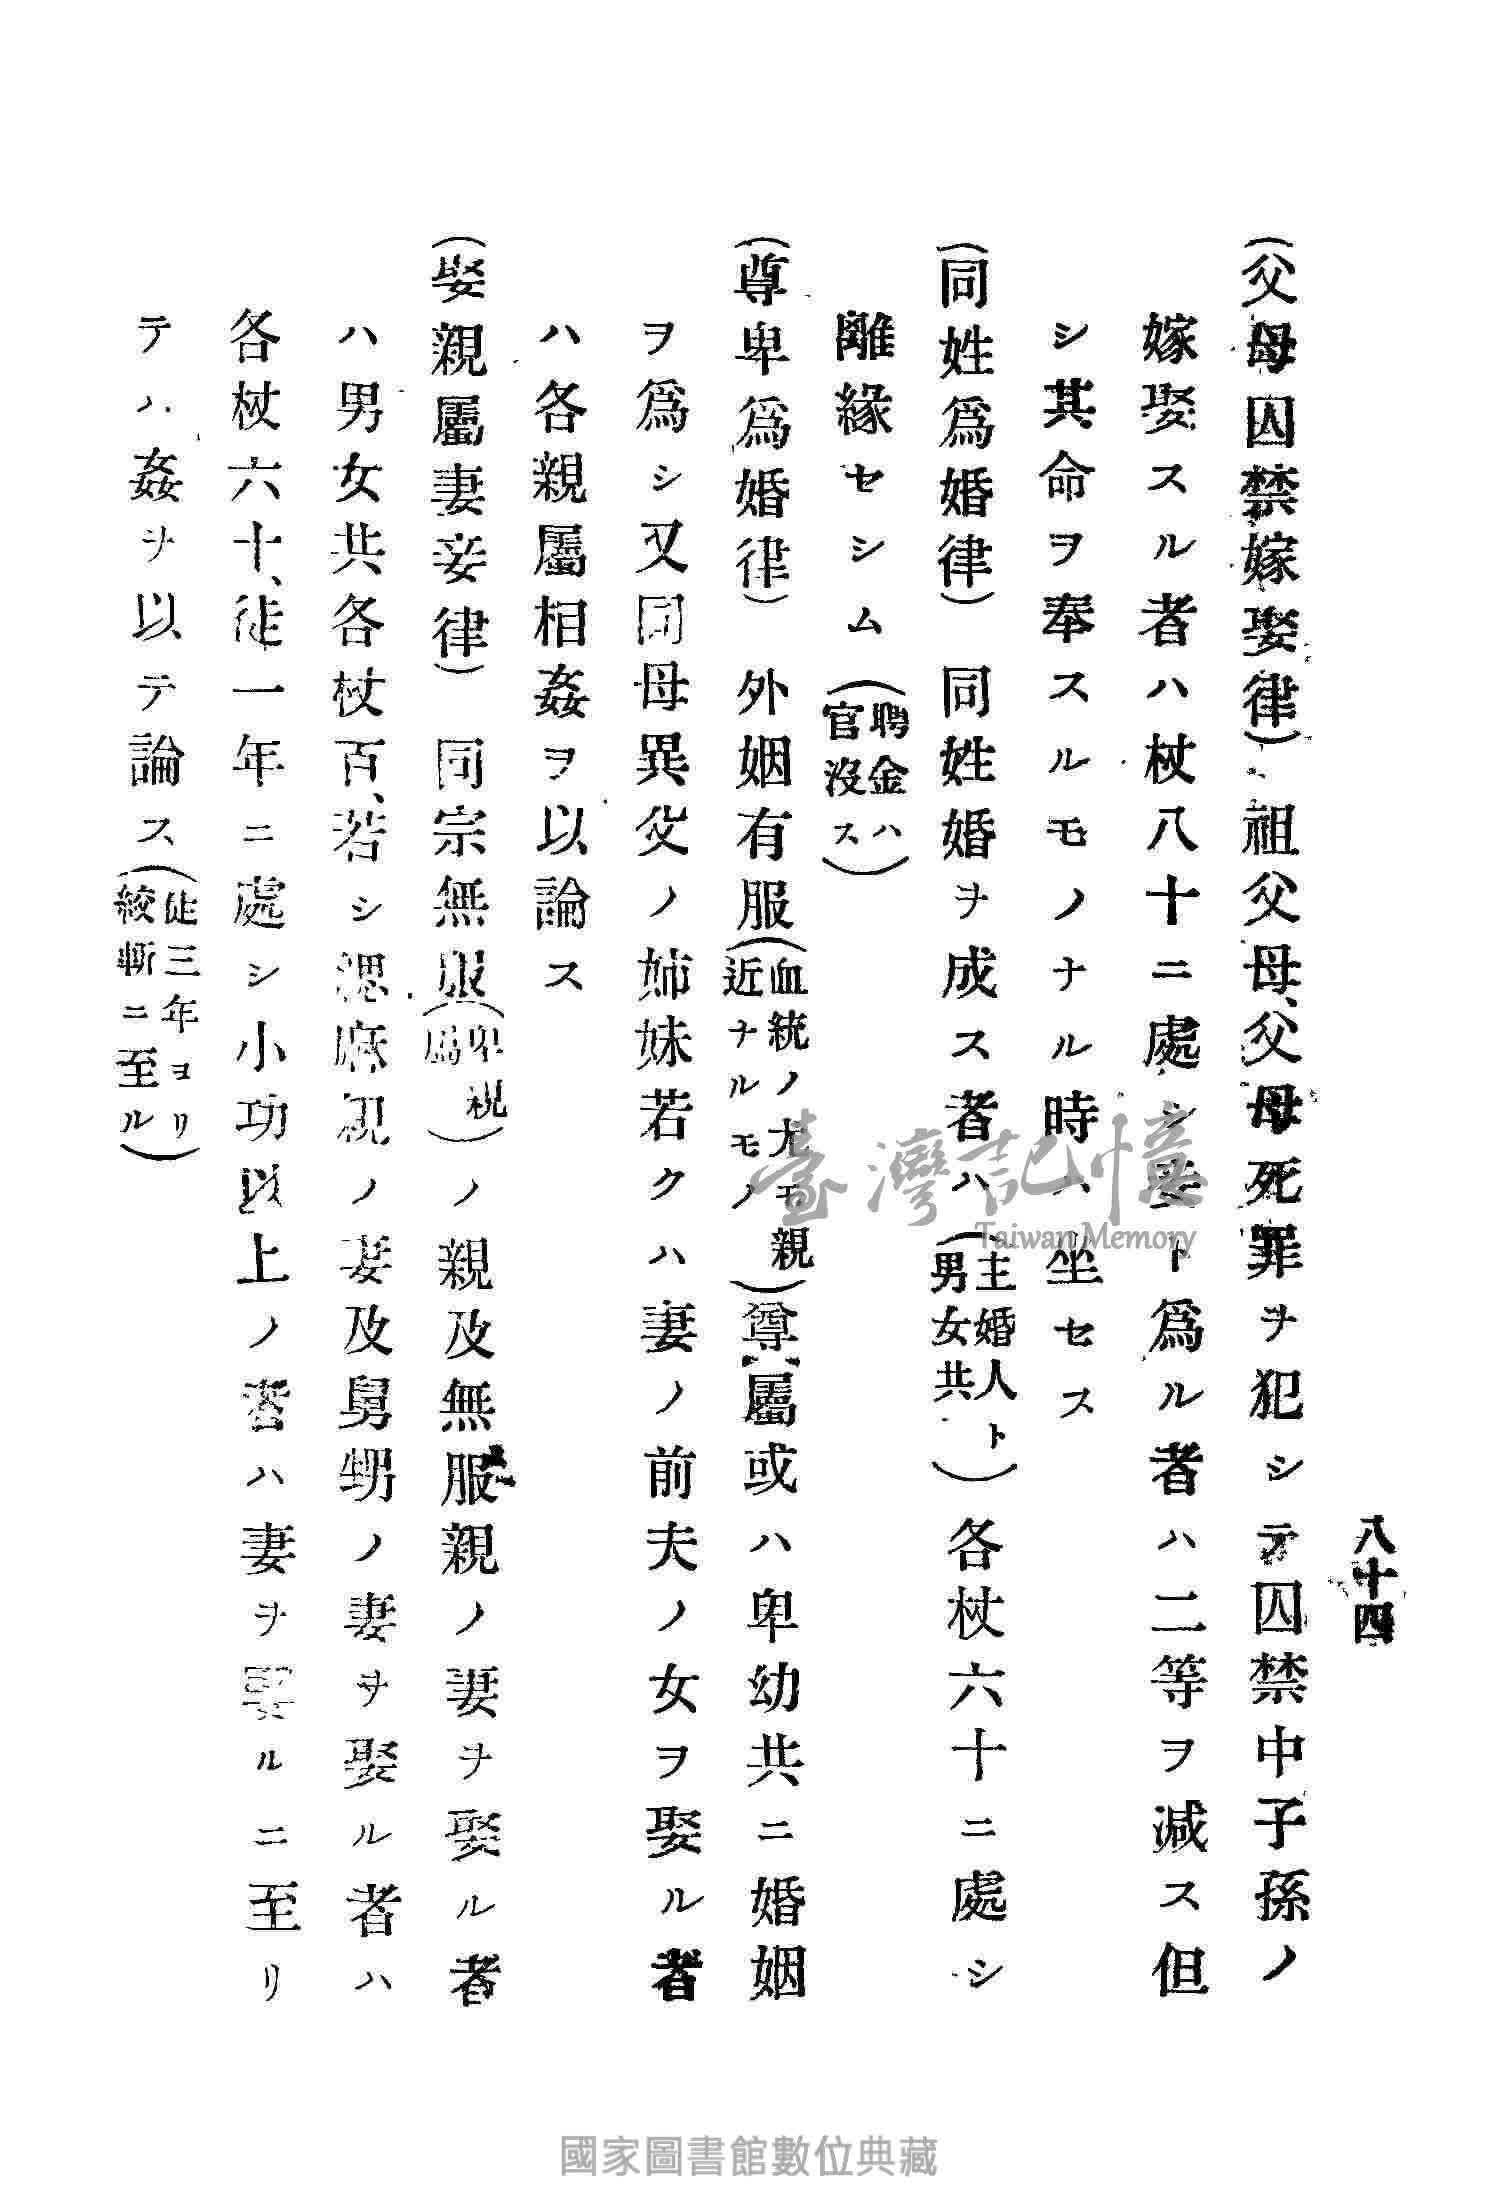 八十四
(父母囚禁嫁娶律)　祖父母、父母死罪ヲ犯シテ囚禁中子孫ノ
嫁娶スル者ハ杖八十ニ處シ妾ト爲ル者ハ二等ヲ減ス但
シ其命ヲ奉スルモノナル時ハ坐セス
(同姓爲婚律)　同姓婚ヲ成ス者ハ(主婚人ト男女共)各杖六十ニ處シ
離緣セシム(聘金ハ官沒ス)
(尊卑爲婚律)　外姻有服(血統ノ尤モ親近ナルモノ)尊屬或ハ卑幼共ニ婚姻
ヲ爲シ又同母異父ノ姉妹若クハ妻ノ前夫ノ女ヲ娶ル者
ハ各親屬相姦ヲ以論ス
(娶親屬妻妾律)　同宗無服(卑親屬)ノ親及無服親ノ妻ヲ娶ル者
ハ男女共各杖百、若シ緦麻親ノ妻及舅甥ノ妻ヲ娶ル者ハ
各杖六十、徒一年ニ處シ小功以上ノ者ハ妻ヲ娶ルニ至リ
テハ姦ヲ以テ論ス(徒三年ヨリ絞斬ニ至ル)
臺灣記憶
Taiwan Memory
國家圖書館數位典藏